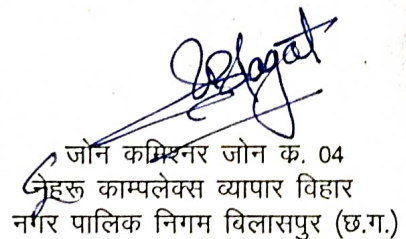 जोन कमिश्नर जोन क. 04
नेहरू काम्पलेक्स व्यापार विहार
नगर पालिक निगम बिलासपुर (छ.ग.)